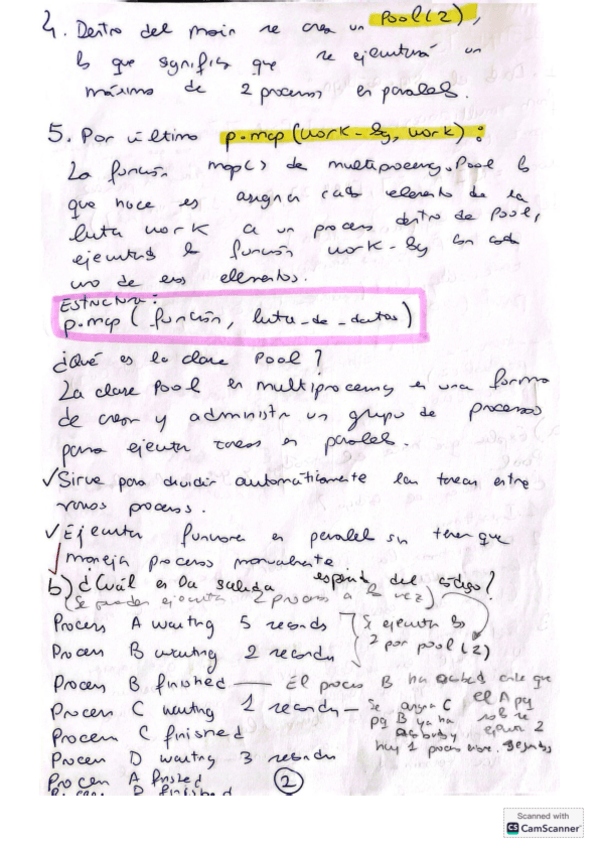 4. Dentro del main se crea un Pool(2),
lo que significa que se ejecutará un
máximo de 2 procesos en paralelo.
5. Por último p.map(work-log, work):
La función map() de multiprocessing.Pool lo
que hace es asignar cada elemento de la
lista work a un proceso dentro de Pool,
ejecutando la función work-log con cada
uno de esos elementos.
ESTRUCTURA:
p.map( función, lista_de_datos)
¿Qué es la clase Pool?
La clase Pool en multiprocessing es una forma
de crear y administrar un grupo de procesos
para ejecutar tareas en paralelo.
✓Sirve para dividir automáticamente las tareas entre
varios procesos.
✓Ejecuta funciones en paralelo sin tener que
manejar procesos manualmente
b) ¿Cuál es la salida esperada del código?
(Se pueden ejecutar 2 procesos a la vez)
Process A waiting 5 seconds
Process B waiting 2 seconds
Se ejecutan los
2 por pool(2)
Process B finished — El proceso B ha acabado antes que
el A pq
solo se
ejecuta 2
segundos
Process C waiting 1 seconds — Se asigna C
pq B ya ha
acabado y
hay 1 proceso libre.
Process C finished
Process D waiting 3 seconds
Process A finished
Process D finished
2
Scanned with
CS CamScanner